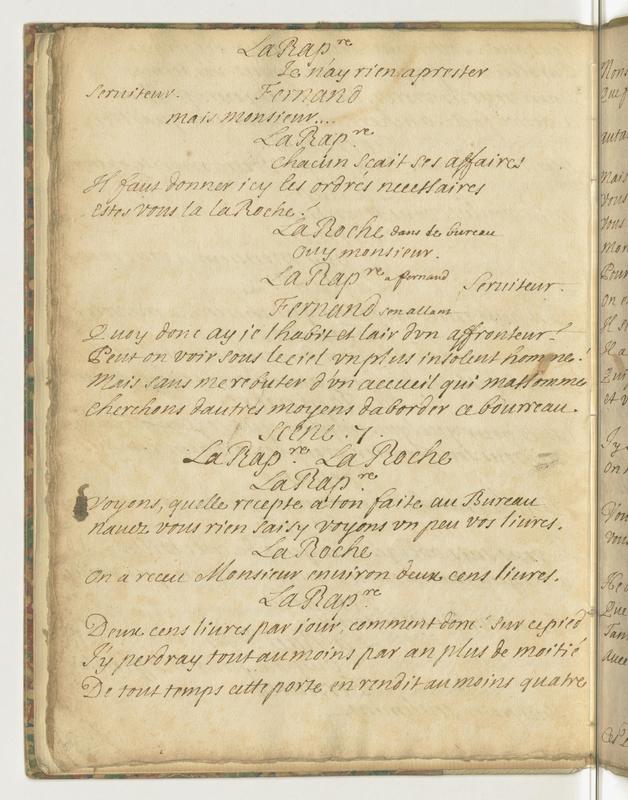 La Rap.re
Je n'ay rien aprester
Seruiteur. Fernand
mais monsieur....
La Rap.re
Chacun scait ses affaires
Il faut donner icy les ordres necessaires
estes vous la la Roche?
La Roche dans le bureau
ouy monsieur.
La Rap.re a fernand Seruiteur.
Fernand s'en allant
Quoy donc ay je lhabit et lair dvn affronteur?
Peut on voir sous le ciel vn plus insolent homme!
Mais sans me rebuter d'vn accueil qui massomme
Cherchons dautres moyens daborder ce bourreau.
Scene .7.
La Rap.re La Roche
La Rap.re
Voyons, quelle recepte a ton faite au Bureau
nauez vous rien saisy voyons vn peu vos liures.
La Roche
on a receu Monsieur enuiron deux cens liures.
La Rap.re
Deux cens liures par jour, comment donc! sur ce pied
J'y perdray tout au moins par an plus de moitié
De tout temps cette porte en rendit au moins quatre